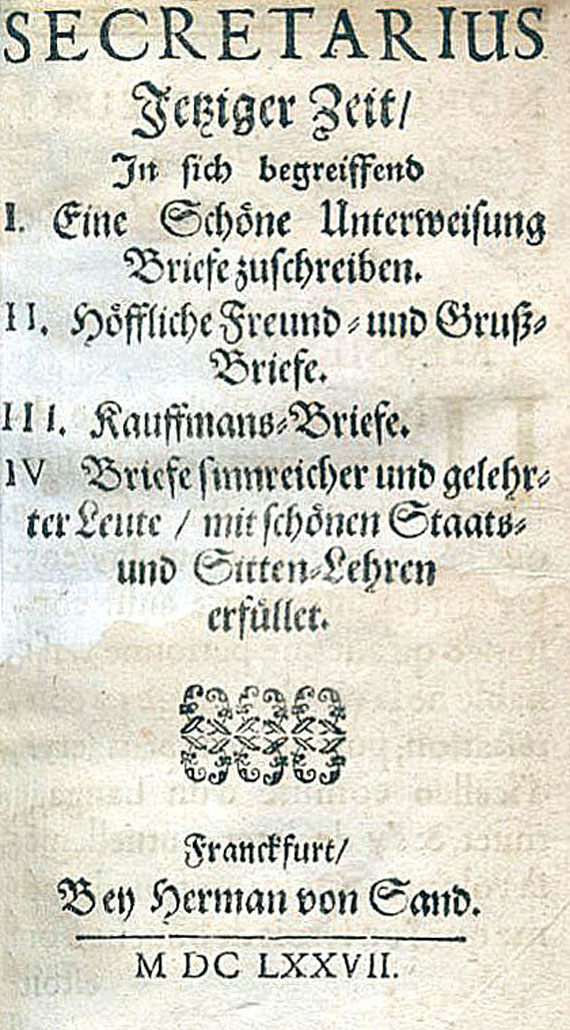 SECRETARIUS
Jetziger Zeit/
In sich begreiffend
I. Eine Schöne Unterweisung
Briefe zuschreiben.
II. Höffliche Freund- und Gruß-
Briefe.
III. Kauffmans-Briefe.
IV Briefe sinnreicher und gelehr-
ter Leute / mit schönen Staats-
und Sitten-Lehren
erfüllet.
Franckfurt/
Bey Herman von Sand.
M DC LXXVII.